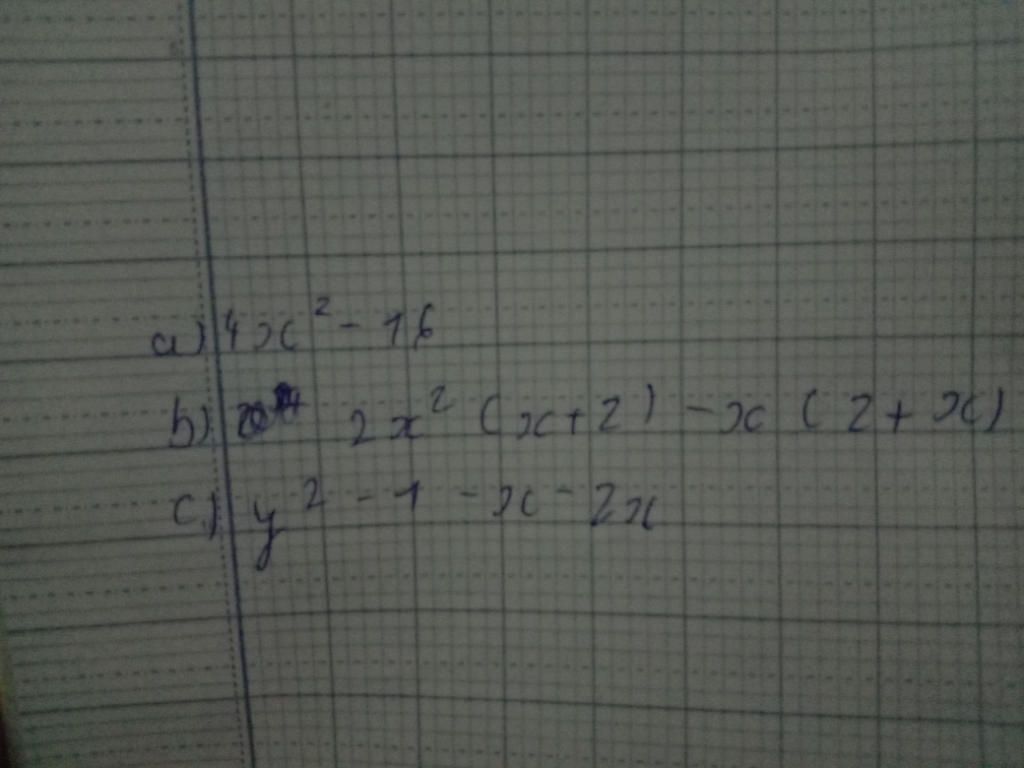 a) 4x² - 16
b) 2x² (x+2) - x (2 + x)
c) y² - 1 - x - 2x